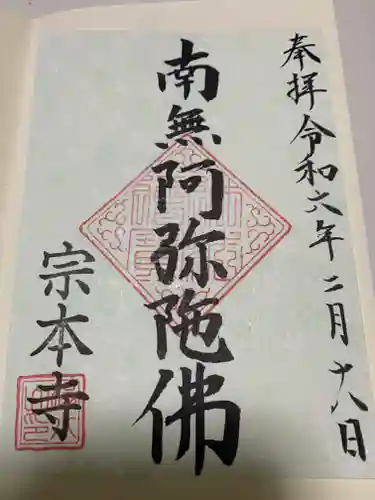 奉拝 令和六年二月十八日
南無阿弥陀佛
宗本寺